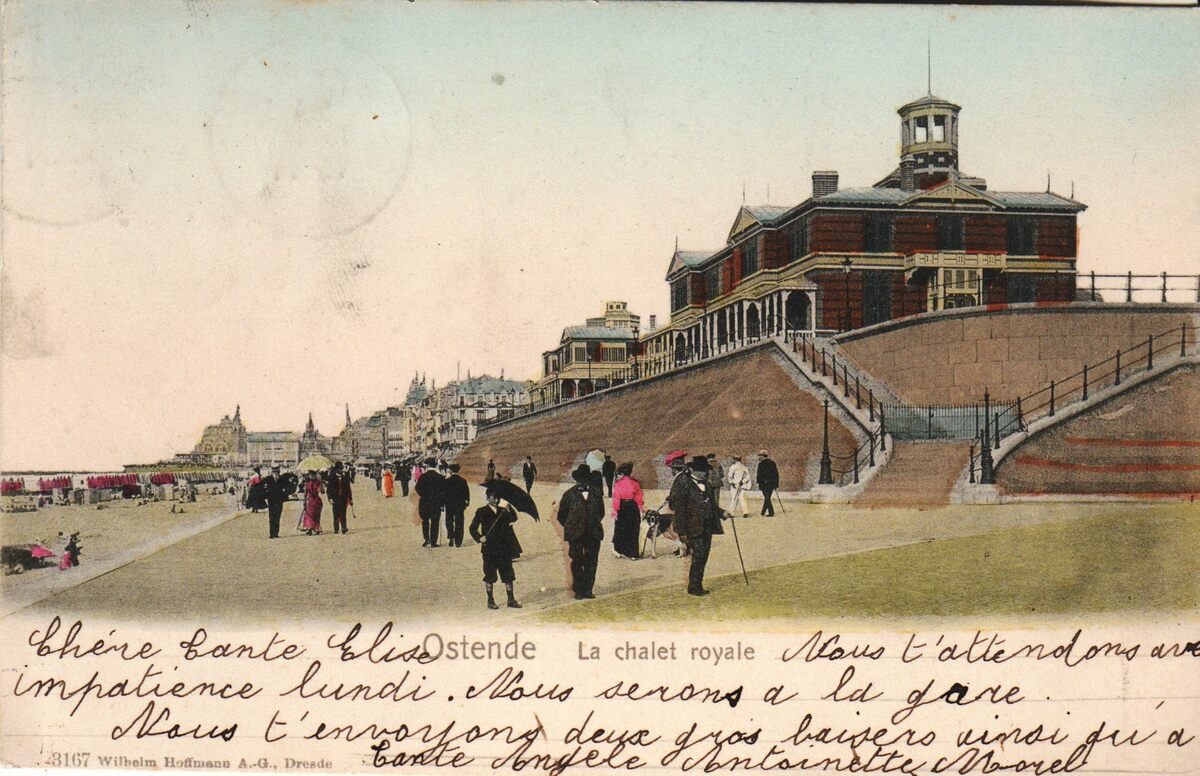 Chére Tante Elise Ostende La chalet royale Nous t'attendons ave
impatience lundi. Nous serons a la gare.
Nous t'envoyons deux gros baisers ainsi qu'a
3167 Wilhelm Hoffmann A.-G., Dresde Tante Angèle Antoinette Morel